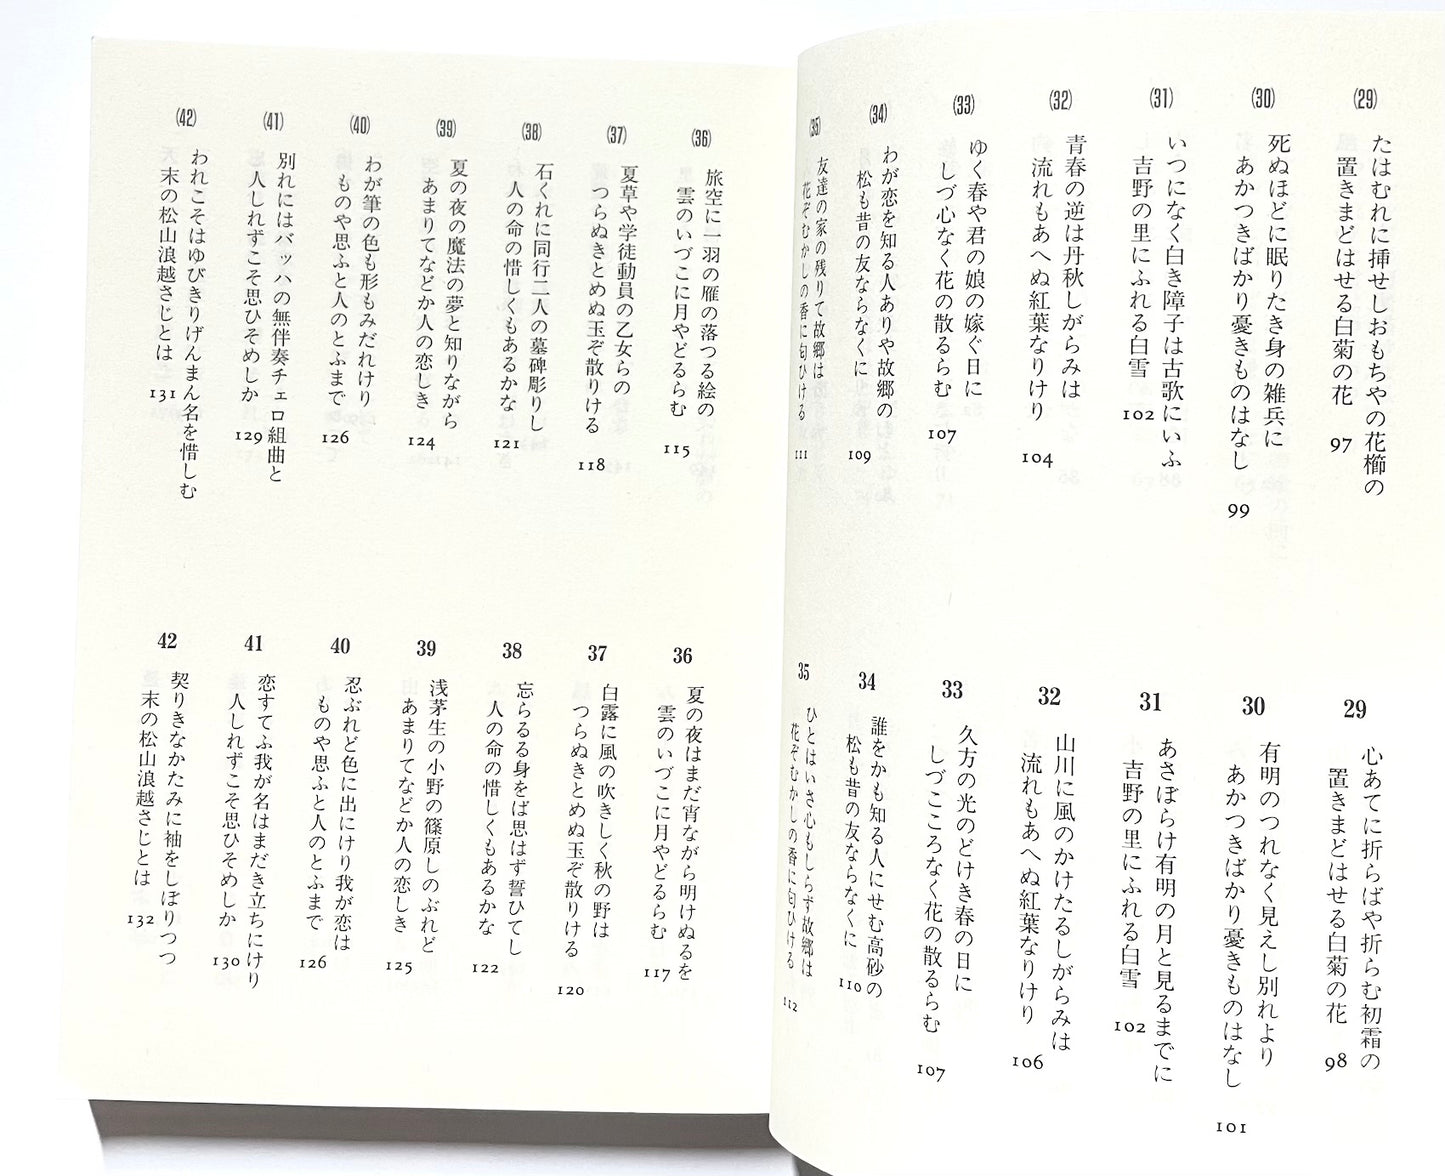 (29)
たはむれに挿せしおもちやの花櫛の
置きまどはせる白菊の花 97
(30)
死ぬほどに眠りたき身の雑兵に
あかつきばかり憂きものはなし 99
(31)
いつになく白き障子は古歌にいふ
吉野の里にふれる白雪 102
(32)
青春の逆は丹秋しがらみは
流れもあへぬ紅葉なりけり 104
(33)
ゆく春や君の娘の嫁ぐ日に
しづ心なく花の散るらむ 107
(34)
わが恋を知る人ありや故郷の
松も昔の友ならなくに 109
(35)
友達の家の残りて故郷は
花ぞむかしの香に匂ひける 111
29
心あてに折らばや折らむ初霜の
置きまどはせる白菊の花 98
30
有明のつれなく見えし別れより
あかつきばかり憂きものはなし 101
31
あさぼらけ有明の月と見るまでに
吉野の里にふれる白雪 102
32
山川に風のかけたるしがらみは
流れもあへぬ紅葉なりけり 106
33
久方の光のどけき春の日に
しづこころなく花の散るらむ 107
34
誰をかも知る人にせむ高砂の
松も昔の友ならなくに 110
35
ひとはいさ心もしらず故郷は
花ぞむかしの香に匂ひける 112
(36)
旅空に一羽の雁の落つる絵の
雲のいづこに月やどるらむ 115
(37)
夏草や学徒動員の乙女らの
つらぬきとめぬ玉ぞ散りける 118
(38)
石くれに同行二人の墓碑彫りし
人の命の惜しくもあるかな 121
(39)
夏の夜の魔法の夢と知りながら
あまりてなどか人の恋しき 124
(40)
わが筆の色も形もみだれけり
ものや思ふと人のとふまで 126
(41)
別れにはバッハの無伴奏チェロ組曲と
人しれずこそ思ひそめしか 129
(42)
われこそはゆびきりげんまん名を惜しむ
末の松山浪越さじとは 131
36
夏の夜はまだ宵ながら明けぬるを
雲のいづこに月やどるらむ 117
37
白露に風の吹きしく秋の野は
つらぬきとめぬ玉ぞ散りける 120
38
忘らるる身をば思はず誓ひてし
人の命の惜しくもあるかな 122
39
浅茅生の小野の篠原しのぶれど
あまりてなどか人の恋しき 125
40
忍ぶれど色に出にけり我が恋は
ものや思ふと人のとふまで 126
41
恋すてふ我が名はまだき立ちにけり
人しれずこそ思ひそめしか 130
42
契りきなかたみに袖をしぼりつつ
末の松山浪越さじとは 132